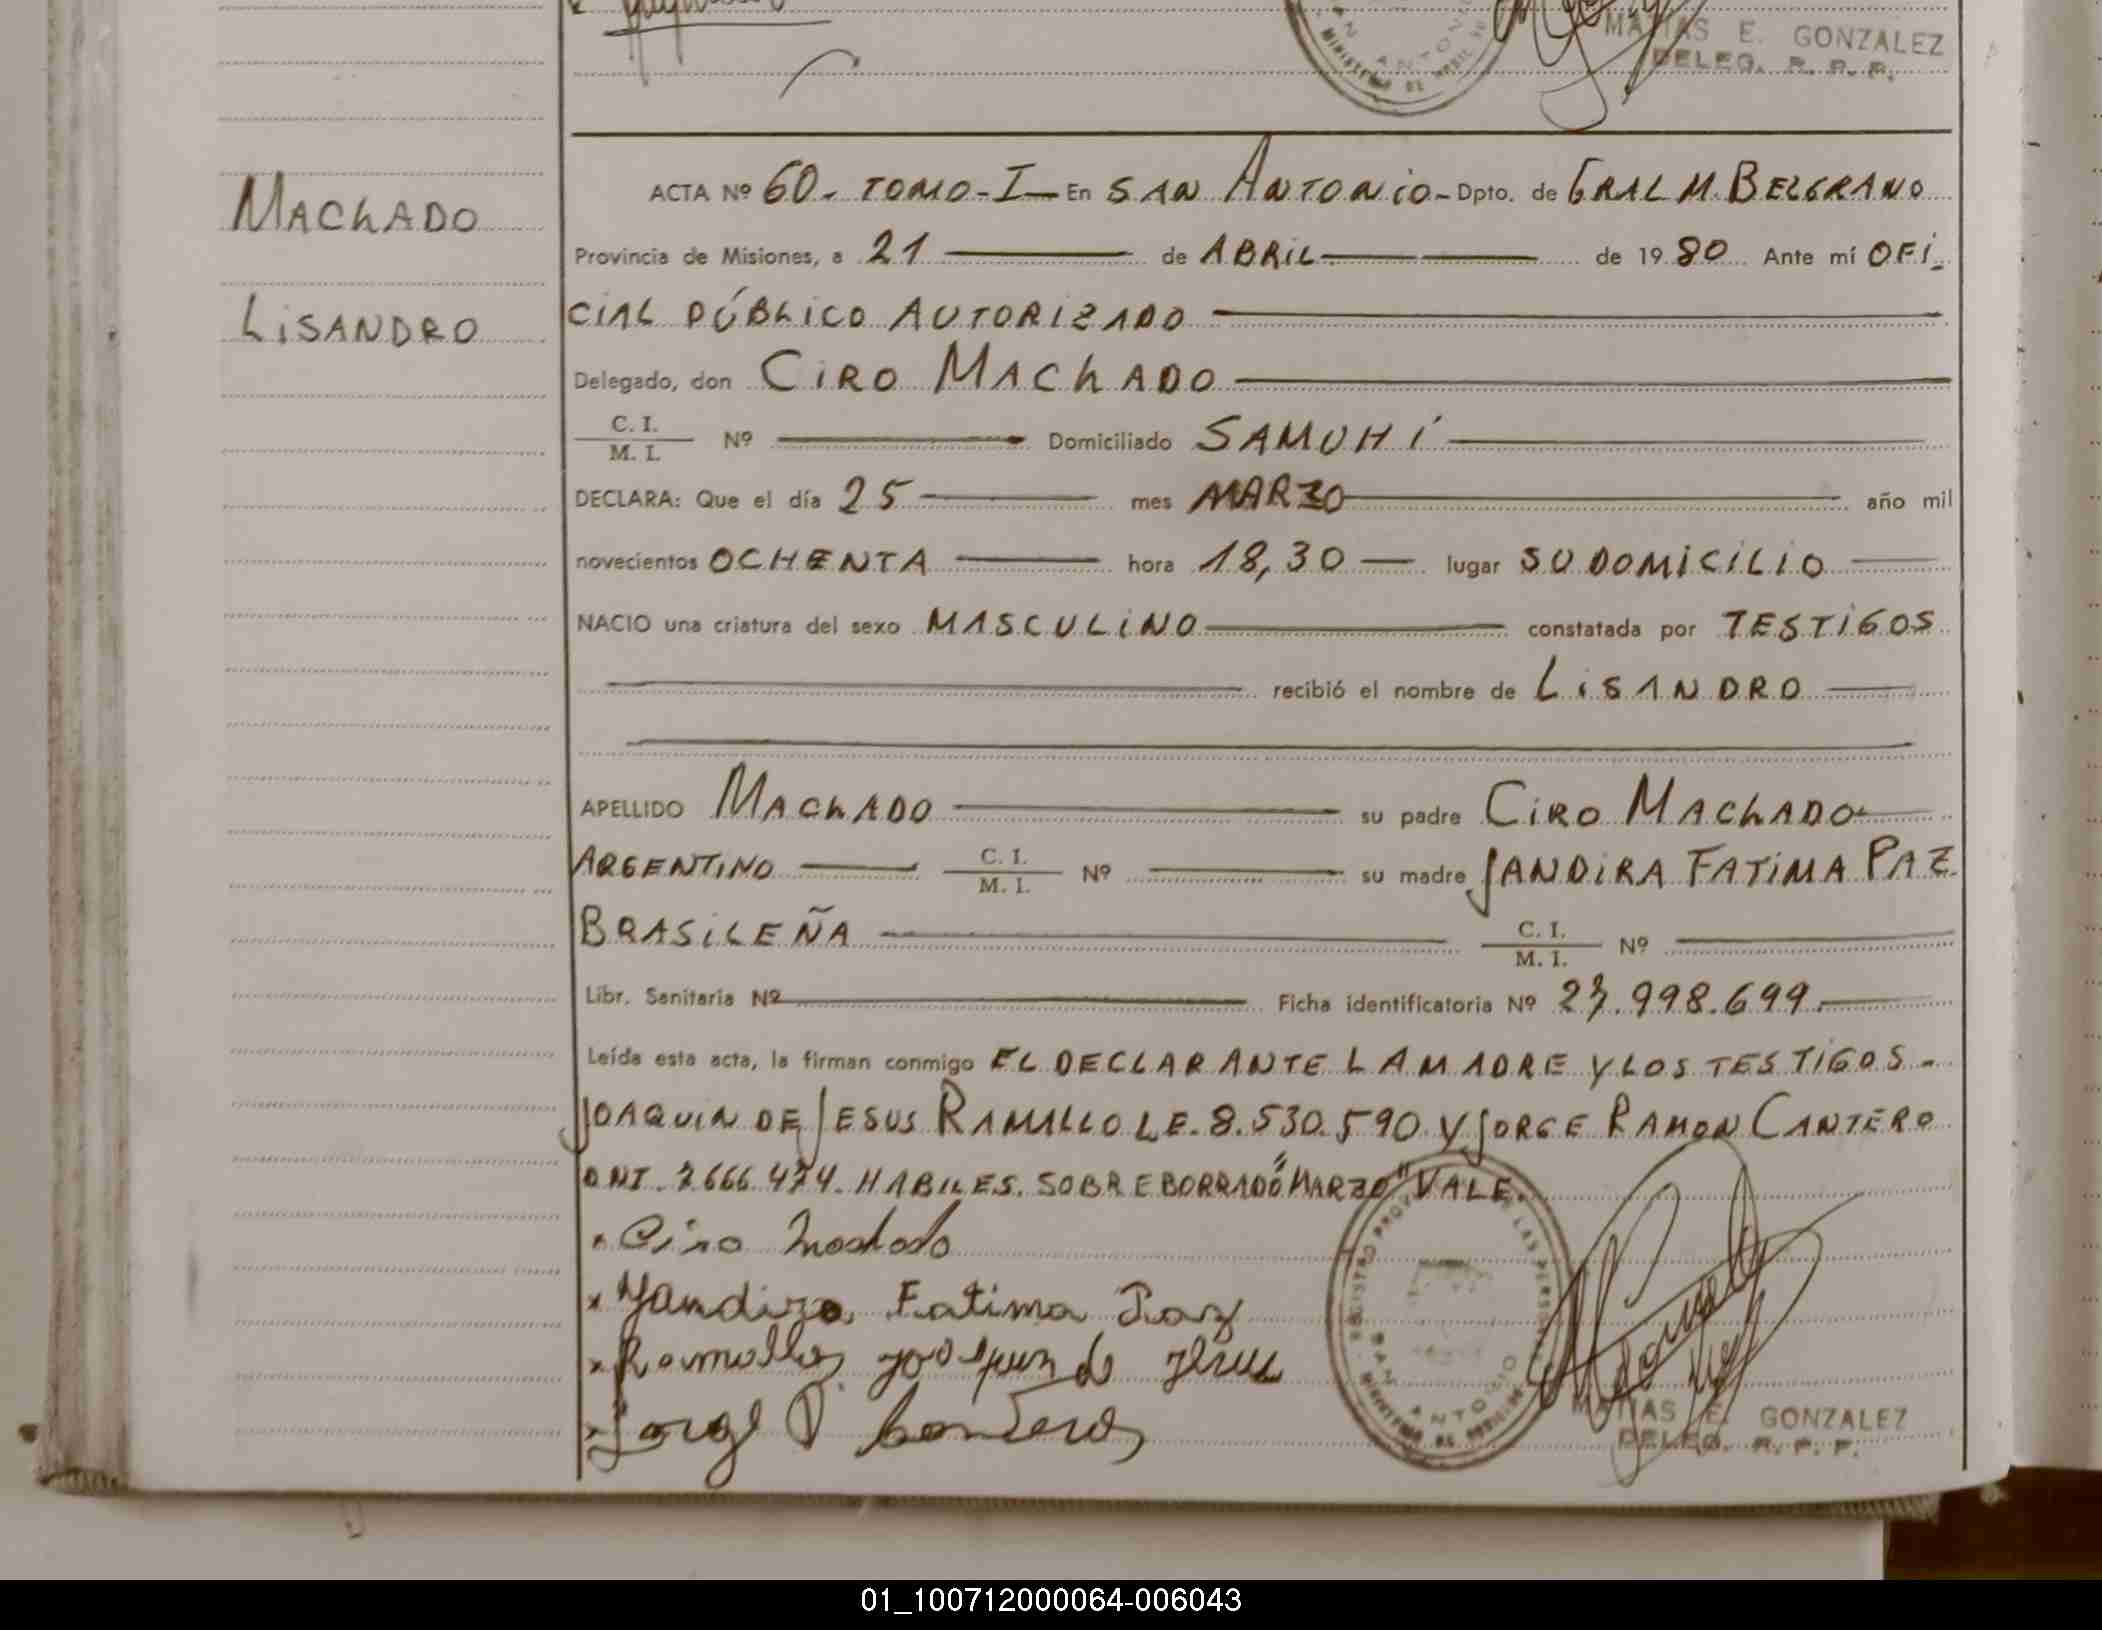 MATIAS E. GONZALEZ
DELEG. R. P. P.
MACHADO
LISANDRO
ACTA Nº 60. TOMO-I- En SAN ANTONIO- Dpto. de GRAL M. BELGRANO
Provincia de Misiones, a 21 de ABRIL de 1980 Ante mí OFI-
CIAL PÚBLICO AUTORIZADO
Delegado, don CIRO MACHADO
C. I.
M. I. Nº Domiciliado SAMUHÍ
DECLARA: Que el día 25 mes MARZO año mil
novecientos OCHENTA hora 18,30 lugar SU DOMICILIO
NACIO una criatura del sexo MASCULINO constatada por TESTIGOS
recibió el nombre de LISANDRO
APELLIDO MACHADO su padre CIRO MACHADO
ARGENTINO C. I. M. I. Nº su madre JANDIRA FATIMA PAZ
BRASILEÑA C. I. M. I. Nº
Libr. Sanitaria Nº Ficha identificatoria Nº 27.998.699
Leída esta acta, la firman conmigo EL DECLARANTE LA MADRE Y LOS TESTIGOS-
JOAQUIN DE JESUS RAMALLO LE. 8.530.590. Y JORGE RAMON CANTERO
DNI. 7.666.474. HABILES. SOBRE BORRADO "MARZO" VALE.
Ciro Machado
x Yandira Fatima Paz
x Ramallo Joaquin de Jesus
x Jorge R. Cantero
SAN ANTONIO
MATIAS E. GONZALEZ
DELEG. R. P. P.
01_100712000064-006043